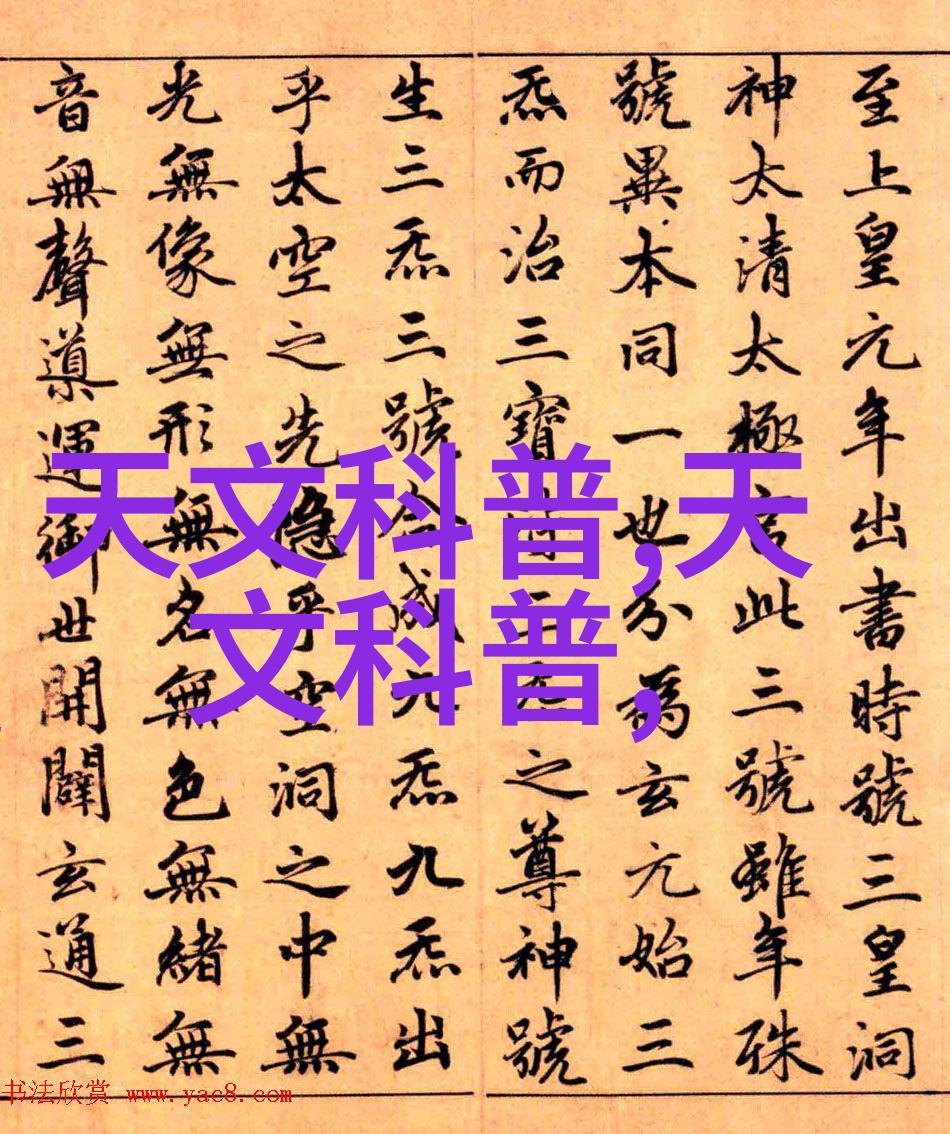 至上皇元年出書時號三皇洞
神太清太極宮此三號雖年殊
號異本同一也分為玄元始三
炁而治三寳皆三炁之尊神號
生三炁三號合成九炁九炁出
乎太空之先隱乎空洞之中無
光無像無形無名無色無緒無
音無聲導運御世開闢玄通三
天文科普,天
文科普,
书法欣赏 www.yac8.com